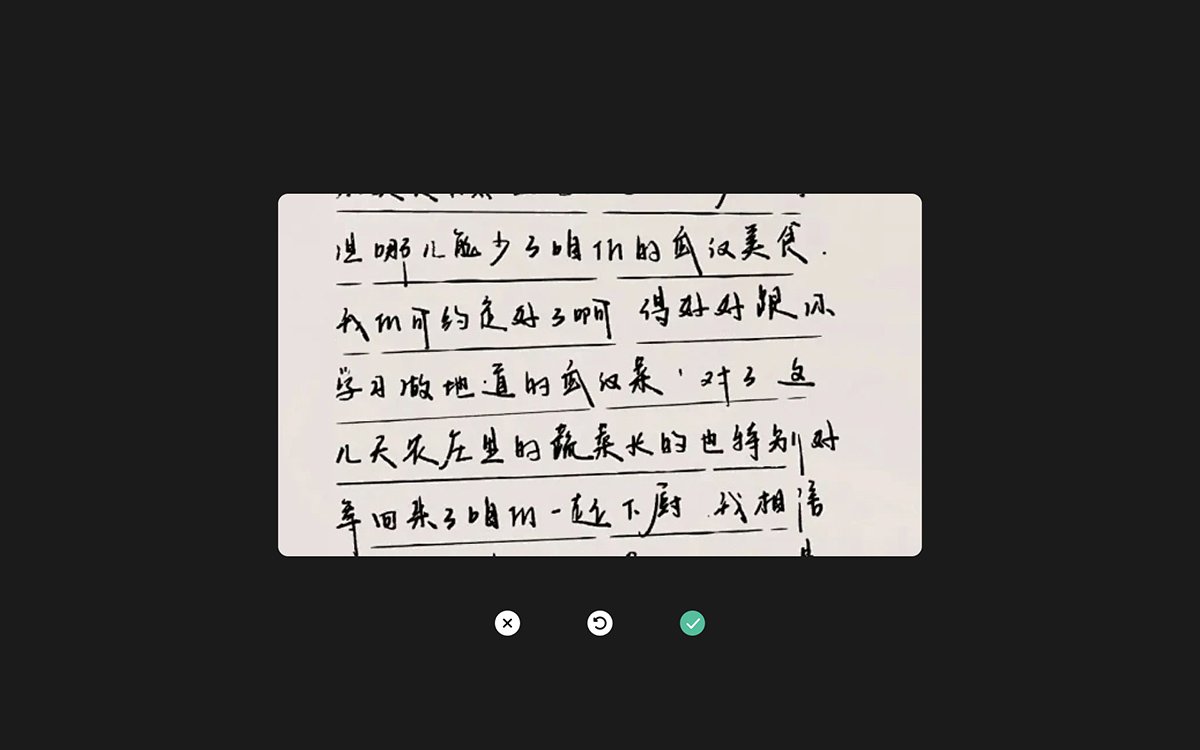 但哪儿能少了咱们的武汉美食.
我们可约定好了啊 得好好跟你
学习做地道的武汉菜,对了 这
几天农庄里的蔬菜长的也特别好
等回来了咱们一起下厨.我相信